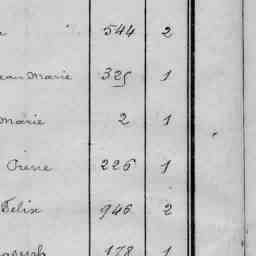 544 2
ean Marie 325 1
Marie 2 1
Pierre 226 1
Felix 946 2
Joseph 178 1